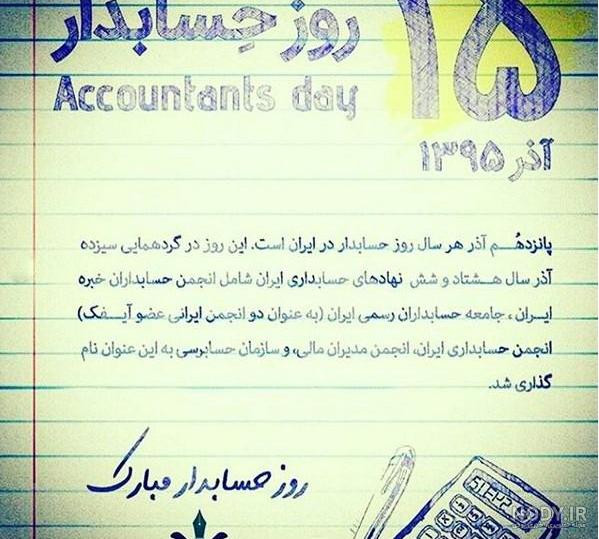 ۱۵
روز حسابدار
Accountants day
آذر ۱۳۹۵
پانزدهُـــم آذر هر سال روز حسابدار در ایران است. این روز در گردهمایی سیزده
آذر سال هـــشتاد و شش نهادهای حسابداری ایران شامل انجمن حسابداران خبره
ایــران ، جامعه حسابداران رسمی ایران (به عنوان دو انجمن ایرانی عضو آیـــفک)
انجمن حسابداری ایران، انجمن مدیران مالی، و سازمان حسابرسی به این عنوان نام
گذاری شد.
روز حسابدار مبارک
NODY.IR